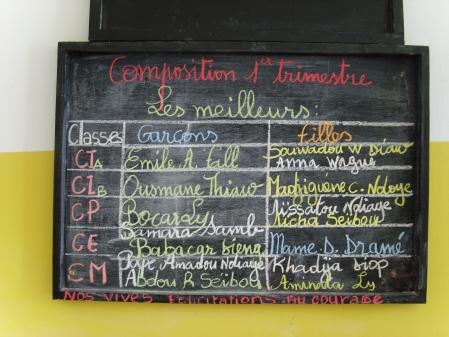 Composition 1er trimestre
Les meilleurs:
Classes Garçons Filles
CIA Emile A. Fall Souwadou W Diaw
Anna Wague
CIB Ousmane Thiaw Madjiguène C. Ndoye
CP Bocar Ly Aïssatou Ndiaye
Aïcha Seibou
CE Samara Samb
Babacar Dieng Mame D. Dramé
CM Pape Amadou Ndiaye Khadija Diop
Abdou R Seibou Aminata Ly
Nos vives félicitations Au courage